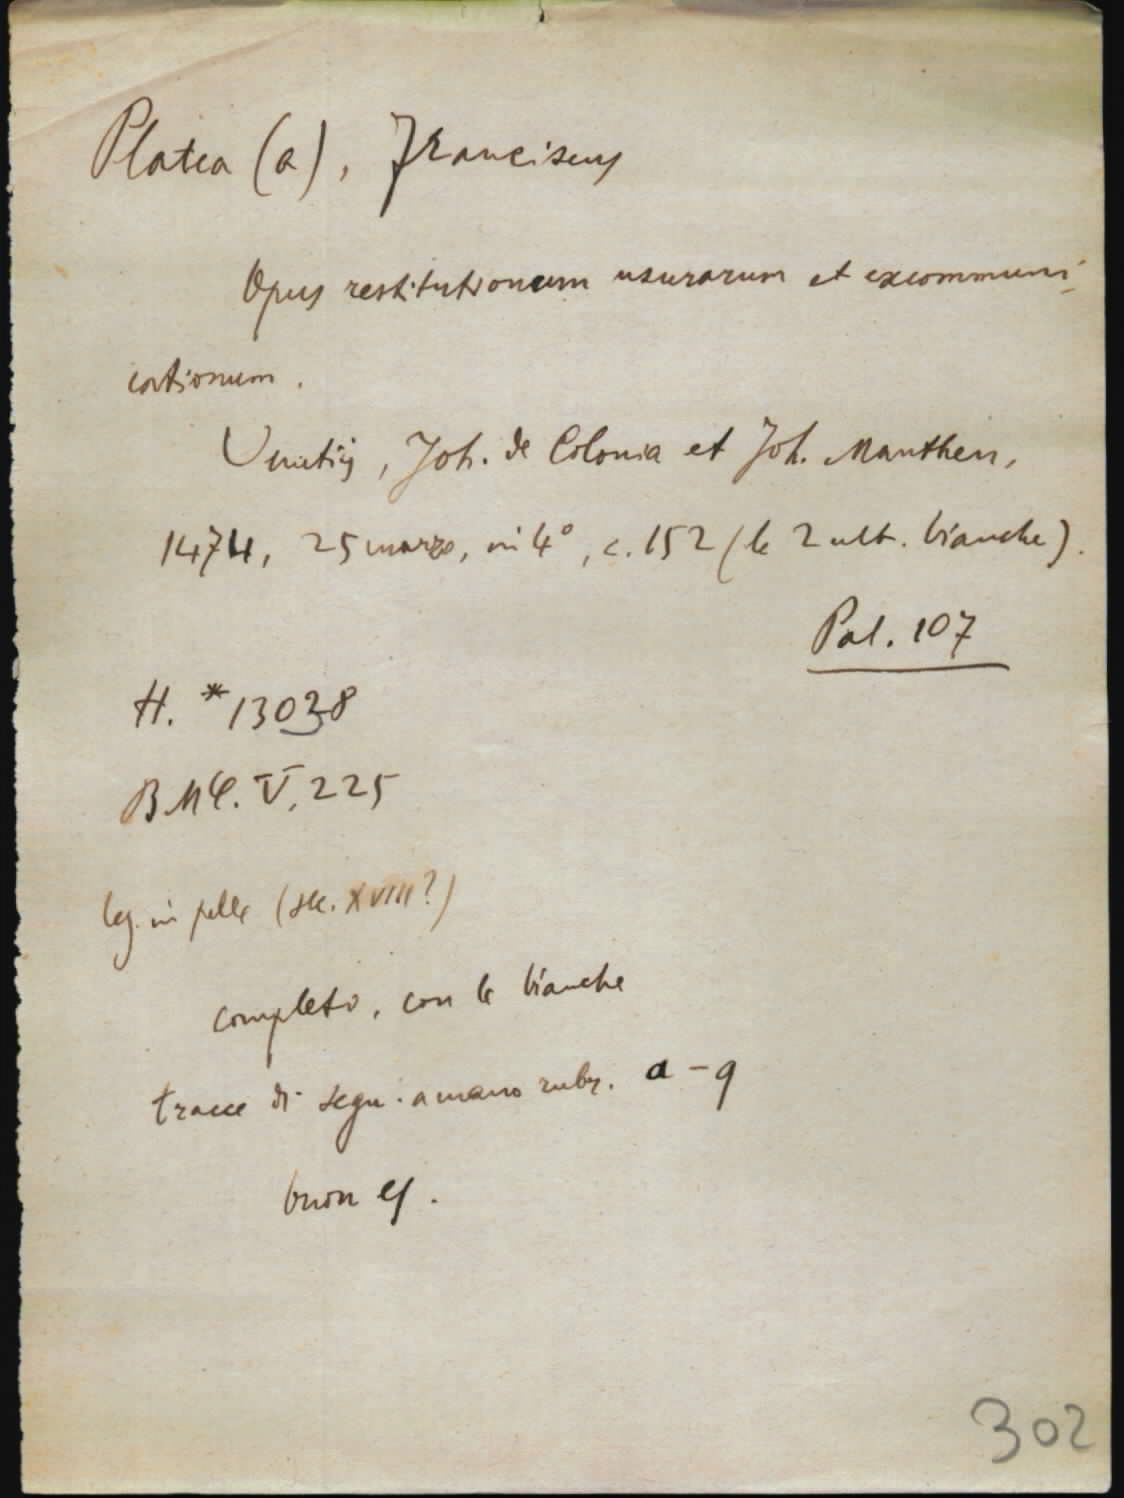 Platea (a), Franciscus
Opus restitutionum usurarum et excommuni-
cationum.
Venetiis, Joh. de Colonia et Joh. Manthen,
1474, 25 marzo, in 4°, c. 152 (le 2 ult. bianche).
Pal. 107
H. *13038
BMC. V, 225
leg. in pelle (sec. XVIII?)
completo, con le bianche
tracce di segn. a mano rubr. a - q
buon es.
302